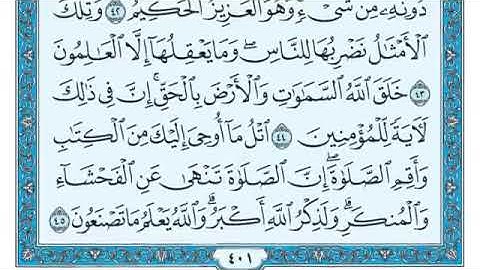 دُونِهِۦ مِن شَىْءٍ ۚ وَهُوَ ٱلْعَزِيزُ ٱلْحَكِيمُ ٤٢ وَتِلْكَ
ٱلْأَمْثَٰلُ نَضْرِبُهَا لِلنَّاسِ ۖ وَمَا يَعْقِلُهَآ إِلَّا ٱلْعَٰلِمُونَ
٤٣ خَلَقَ ٱللَّهُ ٱلسَّمَٰوَٰتِ وَٱلْأَرْضَ بِٱلْحَقِّ ۚ إِنَّ فِى ذَٰلِكَ
لَءَايَةً لِّلْمُؤْمِنِينَ ٤٤ ٱتْلُ مَآ أُوحِىَ إِلَيْكَ مِنَ ٱلْكِتَٰبِ
وَأَقِمِ ٱلصَّلَوٰةَ ۖ إِنَّ ٱلصَّلَوٰةَ تَنْهَىٰ عَنِ ٱلْفَحْشَآءِ
وَٱلْمُنكَرِ ۗ وَلَذِكْرُ ٱللَّهِ أَكْبَرُ ۗ وَٱللَّهُ يَعْلَمُ مَا تَصْنَعُونَ ٤٥
٤٠١